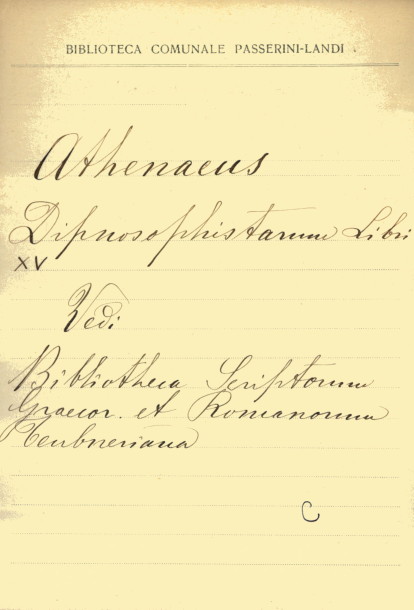 BIBLIOTECA COMUNALE PASSERINI-LANDI
Athenaeus
Dipnosophistarum Libri
XV
Vedi
Bibliotheca Scriptorum
Graecor. et Romanorum
Teubneriana
C